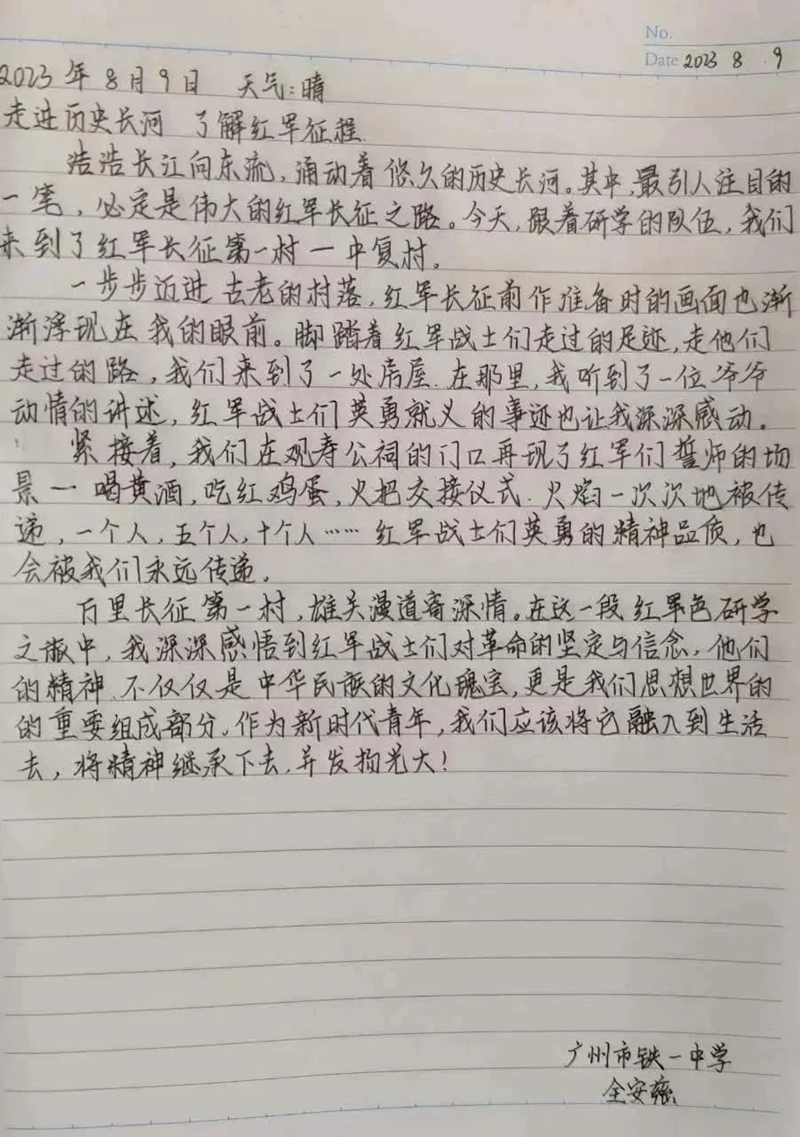 No.
Date 2023 8 9
2023年8月9日 天气:晴
走进历史长河 了解红军征程
浩浩长江向东流,涌动着悠久的历史长河。其中,最引人注目的
一笔,必定是伟大的红军长征之路。今天,跟着研学的队伍,我们
来到了红军长征第一村一中复村。
一步步迈进古老的村落,红军长征前作准备时的画面也渐
渐浮现在我的眼前。脚踏着红军战士们走过的足迹,走他们
走过的路,我们来到了一处房屋.在那里,我听到了一位爷爷
动情的讲述,红军战士们英勇就义的事迹也让我深深感动。
紧接着,我们在观寿公祠的门口再现了红军们誓师的场
景一喝黄酒,吃红鸡蛋,火把交接仪式.火焰一次次地被传
递,一个人,五个人,十个人……红军战士们英勇的精神品质,也
会被我们永远传递。
万里长征第一村,雄关漫道寄深情。在这一段红军色研学
之旅中,我深深感悟到红军战士们对革命的坚定与信念,他们
的精神不仅仅是中华民族的文化瑰宝,更是我们思想世界的
的重要组成部分。作为新时代青年,我们应该将它融入到生活
去,将精神继承下去,并发扬光大!
广州市铁一中学
全安